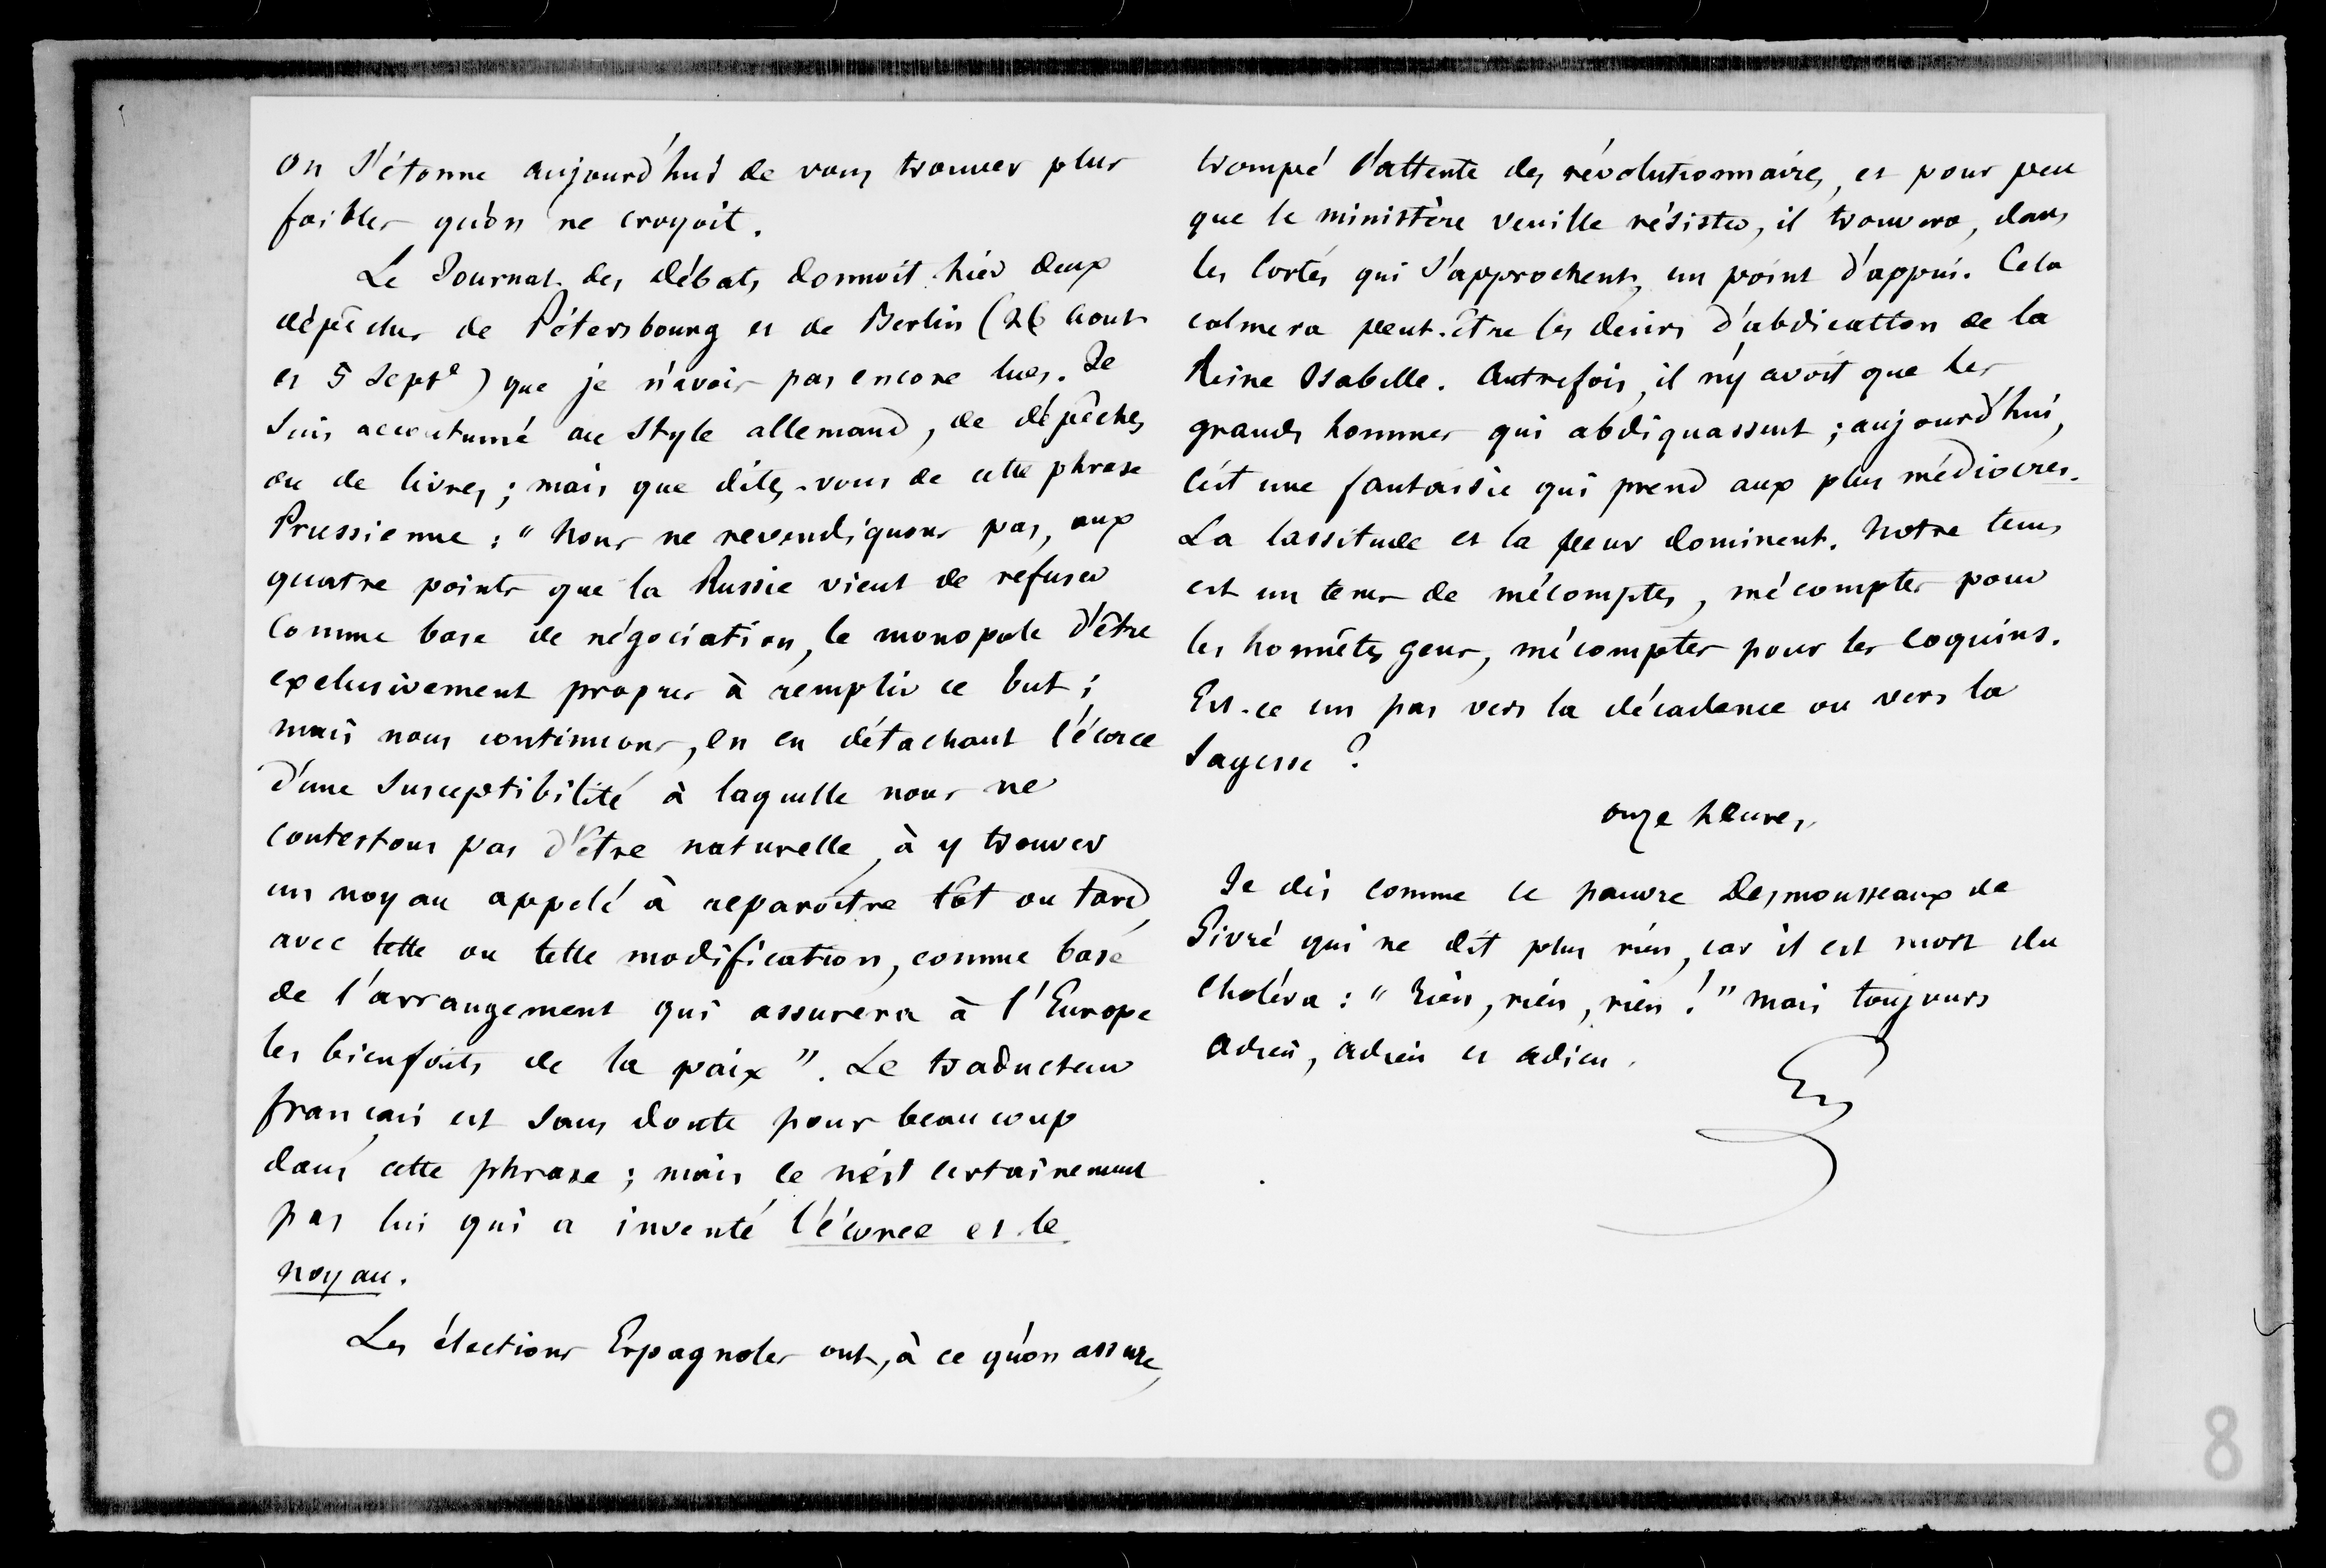 on s'étonne aujourd'hui de vous trouver plus
foibles qu'on ne croyoit.
Le Journal des débats donnoit hier deux
dépêches de Pétersbourg et de Berlin (26 aout
et 5 Septe) que je n'avois pas encore lues. Je
suis accoutumé au style allemand, de dépêches
ou de livres ; mais que dites-vous de cette phrase
Prussienne : "Nous ne revendiquons pas, aux
quatre points que la Russie vient de refuser
comme base de négociation, le monopole d'être
exclusivement propres à remplir ce but ;
mais nous continuons, en en détachant l'écorce
d'une susceptibilité à laquelle nous ne
contestons pas d'être naturelle, à y trouver
un noyau appelé à reparoitre tôt ou tard,
avec telle ou telle modification, comme base
de l'arrangement qui assurera à l'Europe
les bienfaits de la paix". Le traducteur
français est sans doute pour beaucoup
dans cette phrase ; mais ce n'est certainement
pas lui qui a inventé l'écorce et le
noyau.
Les élections Espagnoles ont, à ce qu'on assure,
trompé l'attente des révolutionnaires, et pour peu
que le ministère veuille résister, il trouvera, dans
les Cortés qui s'approchent, un point d'appui. Cela
calmera peut-être les desirs d'abdication de la
Reine Isabelle. Autrefois, il n'y avoit que les
grands hommes qui abdiquassent ; aujourd'hui,
c'est une fantaisie qui prend aux plus médiocres.
La lassitude et la peur dominent. Notre tems
est un tems de mécomptes, mécomptes pour
les honnêtes gens, mécomptes pour les coquins.
Est-ce un pas vers la décadence ou vers la
sagesse ?
onze heures.
Je dis comme ce pauvre Desmousseaux de
Givré qui ne dit plus rien, car il est mort du
choléra : "Rien, rien, rien !" mais toujours
adieu, adieu et adieu.
8